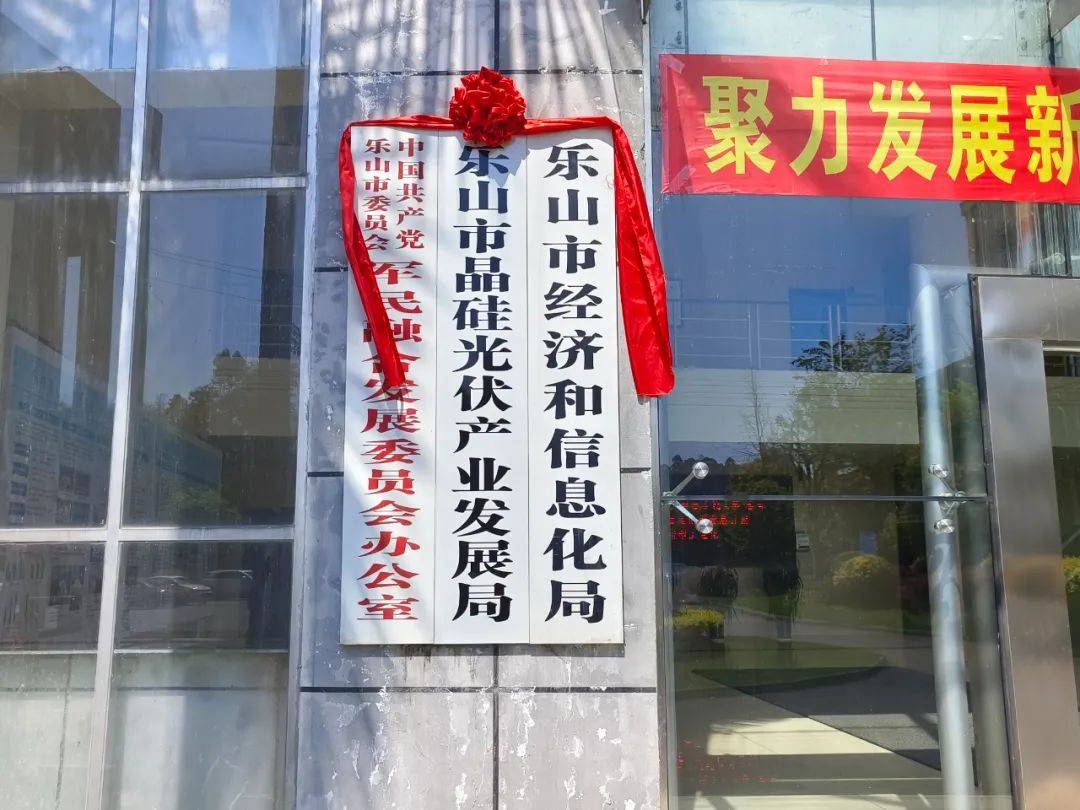 聚力发展新
中国共产党
乐山市委员会
军民融合发展委员会办公室
乐山市晶硅光伏产业发展局
乐山市经济和信息化局